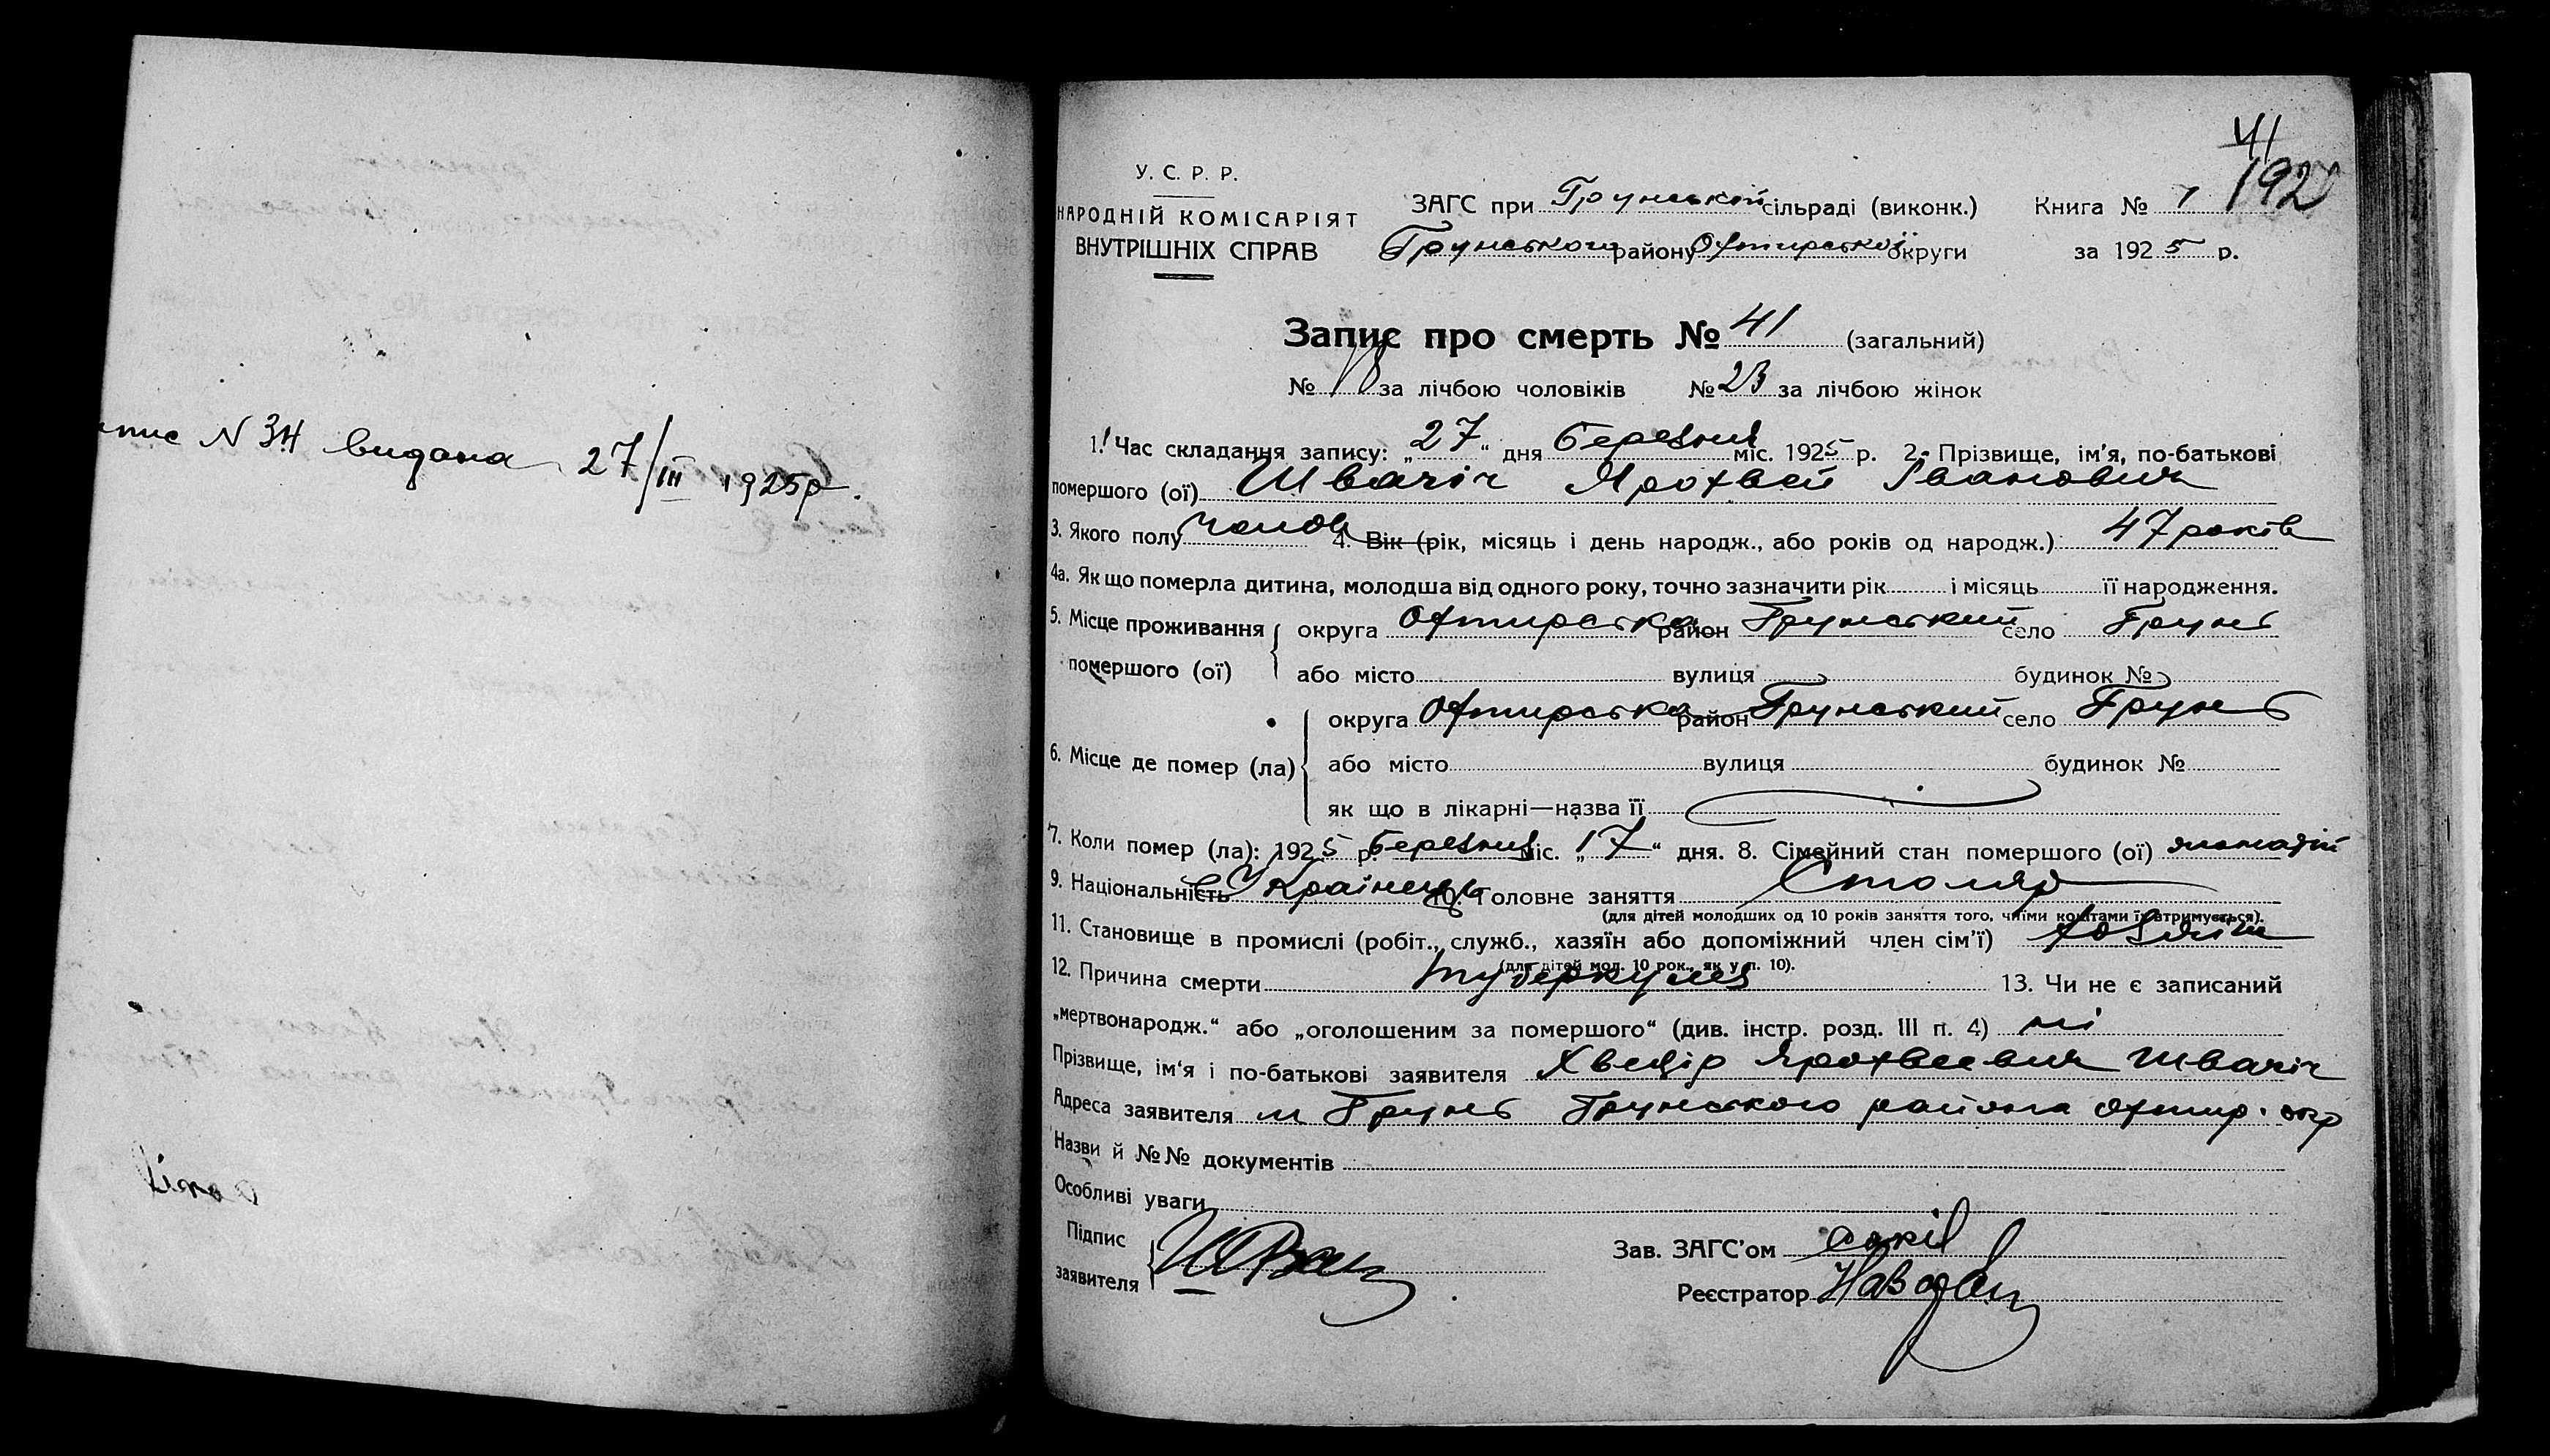 N 34 видана 27/III 1925р.
41
192
У. С. Р. Р.
НАРОДНІЙ КОМІСАРІЯТ
ВНУТРІШНІХ СПРАВ
ЗАГС при Грунській сільраді (виконк.) Книга №
Грунського району Охтирської округи за 1925 р.
Запис про смерть № 41 (загальний)
№ 18 за лічбою чоловіків № 23 за лічбою жінок
1. Час складання запису: „27“ дня березня міс. 1925 р. 2. Прізвище, ім'я, по-батькові
помершого (ої) Швачіч Ярохвей Іванович
3. Якого полу чолов 4. Вік (рік, місяць і день народж., або років од народж.) 47 років
4а. Як що померла дитина, молодша від одного року, точно зазначити рік і місяць її народження.
5. Місце проживання округа Охтирська район Грунський село Грунь
помершого (ої) або місто вулиця будинок №
округа Охтирська район Грунський село Грунь
6. Місце де помер (ла) або місто вулиця будинок №
як що в лікарні—назва її
7. Коли помер (ла): 1925 р. березня міс. „17“ дня. 8. Сімейний стан помершого (ої) жонатій
9. Національність Українець 10. Головне заняття Столяр
(для дітей молодших од 10 років заняття того, чиїми коштами їх втримується).
11. Становище в промислі (робіт., служб., хазяїн або допоміжний член сім'ї) хозяін
(для дітей мол. 10 рок., як у п. 10).
12. Причина смерти туберкульоз 13. Чи не є записаний
„мертвонародж.“ або „оголошеним за помершого“ (див. інстр. розд. III п. 4) ні
Прізвище, ім'я і по-батькові заявителя Хведір Ярохвеевич Швачіч
Адреса заявителя м Грунь Грунського района Охтир. окр
Назви й №№ документів
Особливі уваги
Підпис
заявителя
Зав. ЗАГС'ом
Реєстратор